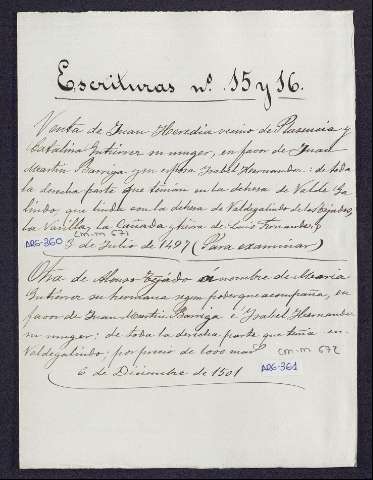 Escrituras nº. 15 y 16.
Venta de Juan Heredia vecino de Plasencia y
Catalina Gutiérrez su muger, en favor de Juan
Martin Barriga y su esposa Ysabel Hernandez: de toda
la derecha parte que tenian en la dehesa de Valde Ga
lindo, que linda con la dehesa de Valdegalindo de los Tejados,
la Varilla, la Cañada, y tierra de Luis Fernandez
cm-m 671
ARG-360 3 de Julio de 1497 (Para examinar)
Otra de Alonso Tejádo á nombre de Maria
Gutiérrez su hermana segun poder que acompaña, en
favor de Juan Martin Barriga é Ysabel Hernandez
su muger: de toda la derecha parte que tenia en
Valdegalindo; por precio de 6000 mars. cm-m 672
6 de Diciembre de 1501 ARG-361